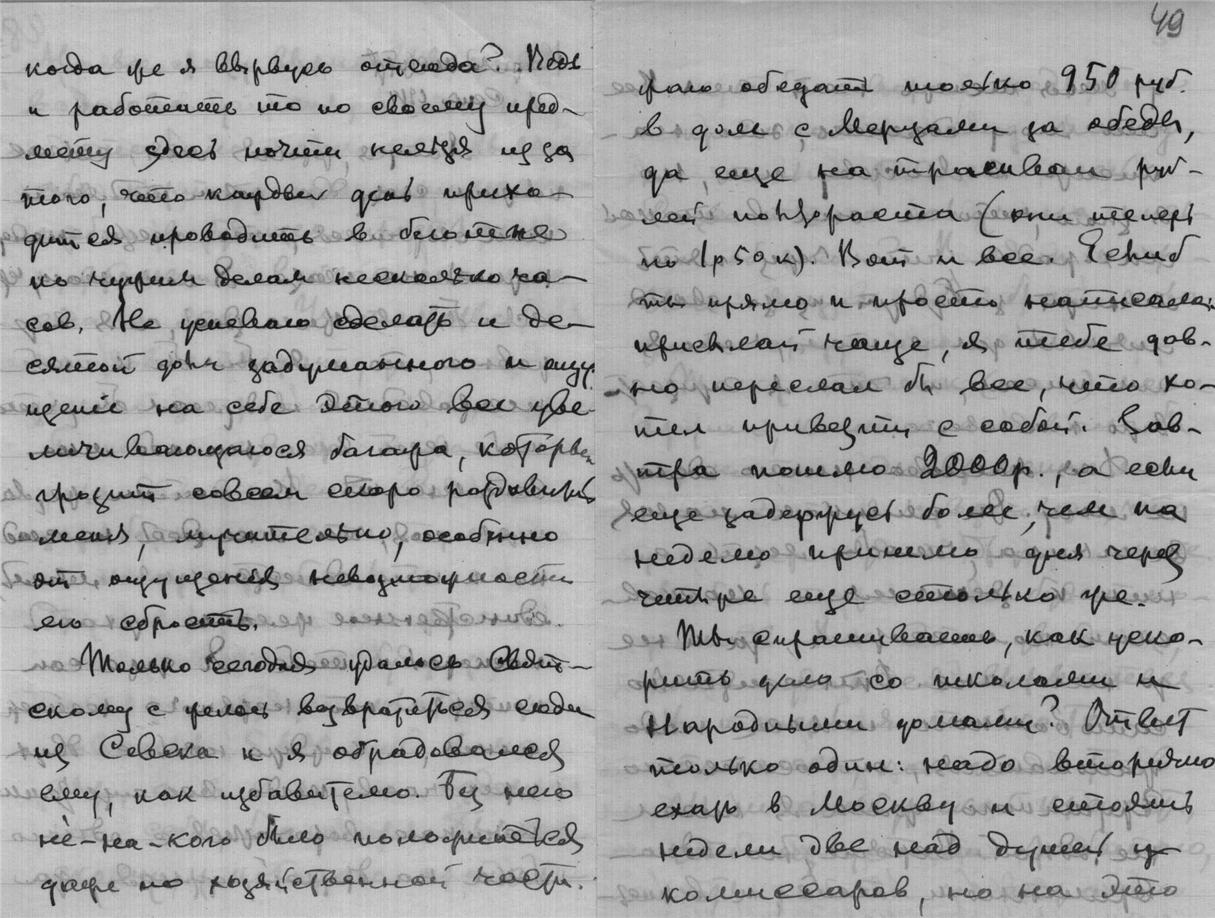 когда же я вырвусь отсюда? Ведь
и работать то по своему пред-
мету здесь почти нельзя из за
того, что каждый день прихо-
дится проводить в беготне
по чужим делам несколько ча-
сов. Не успеваю сделать и де-
сятой доли задуманного и ощу-
щение на себе этого все уве-
личивающагося багажа, который
грозит совсем скоро раздавить
меня, мучительно, особенно
от ощущения невозможности
его сбросить.
Только сегодня удалось Свят-
скому с женой возвратиться сюда
из Севска и я обрадовался
ему, как избавителю. Без него
не-на-кого было положиться
даже по хозяйственной части.
49
обедать только 950 руб.
в дом с Мерцами за обеды,
да еще на трамваи руб-
лей полтораста (они теперь
по 1р 50к). Вот и все. Если б
ты прямо и просто написала:
присылай чаще, я тебе дав-
но переслал бы все, что хо-
тел привезти с собой. Зав-
тра пошлю 2000р., а если
еще задержусь более, чем на
неделю пришлю дня через
четыре еще столько же.
Ты спрашиваешь, как уско-
рить дело со школами и
Народными домами? Ответ
только один: надо вторично
ехать в Москву и стоять
недели две над душей у
комиссаров, но на это